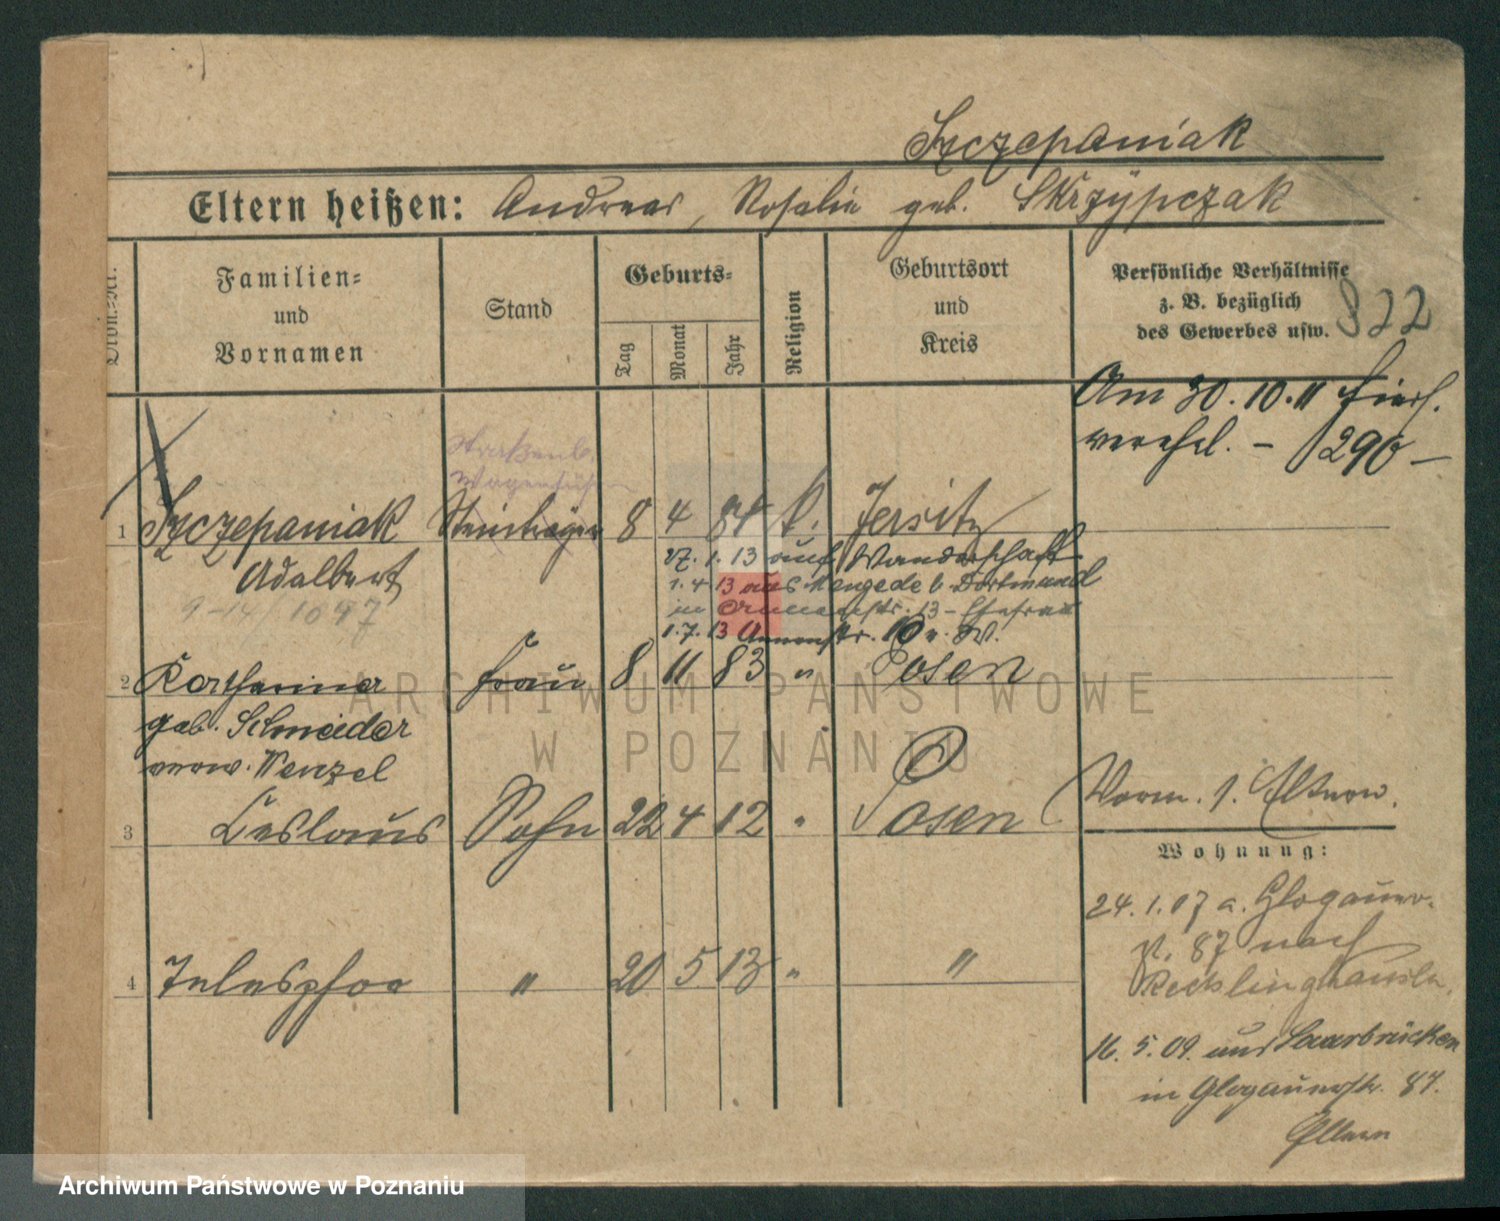 Szczepaniak
Eltern heißen: Andreas, Rosalie geb. Skrzypczak
Ordn.-Nr.
Familien-
und
Vornamen
Stand
Geburts-
Tag
Monat
Jahr
Religion
Geburtsort
und
Kreis
Persönliche Verhältnisse
z. B. bezüglich
des Gewerbes usw.
822
Am 30.10.11 hier
verehel. – 1290 –
Straßenb.
Wagenführer
1 Szczepaniak Steinträger 8 4 84 k. Jersitz
Adalbert
27.1.13 auf Wanderschaft
1.4.13 aus Mengede b. Dortmund
in Annenstr. 13 - Ehefrau
1.7.13 Annenstr. 10
9-14/1097
2 Katharina Frau 8 11 83 " Posen
geb. Schneider
verw. Wenzel
3 Ceslaus Sohn 22 4 12 " Posen
Vorm. s. Eltern.
Wohnung:
24.1.07 a. Glogauer-
st. 87 nach
Recklinghausen.
4 Telesphor " 20 5 13 " "
16.5.09. aus Saarbrücken
in Glogauerstr. 87.
Eltern
ARCHIWUM PAŃSTWOWE
W POZNANIU
Archiwum Państwowe w Poznaniu